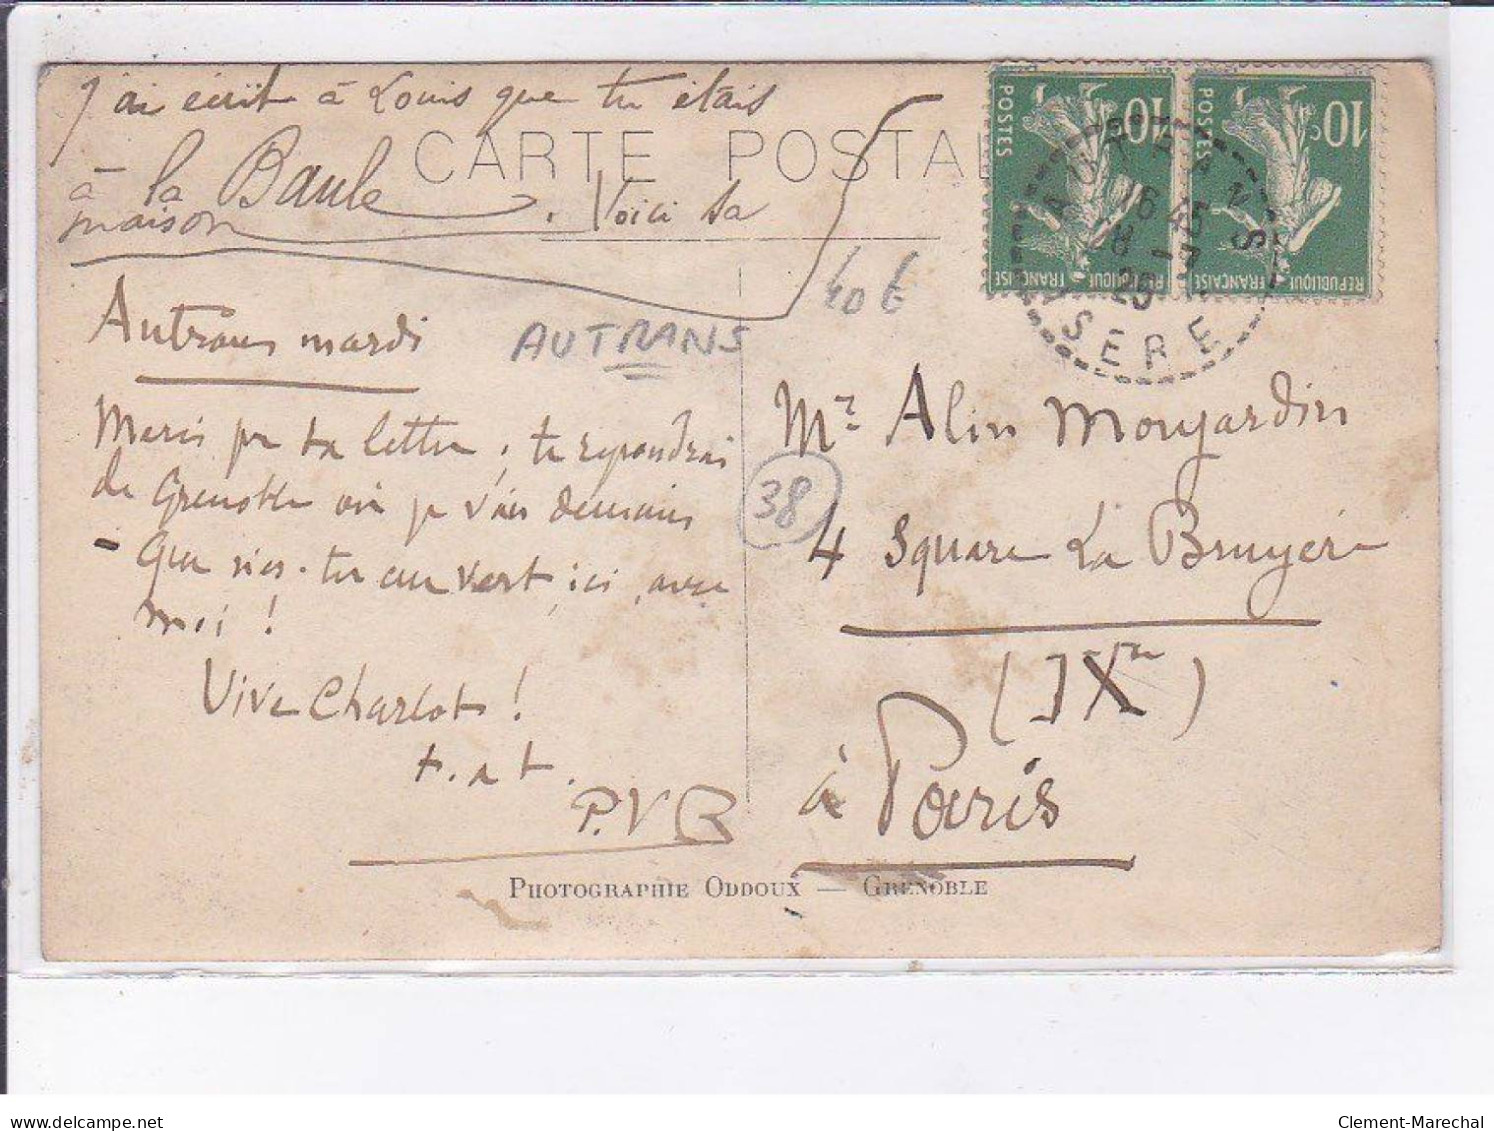 J'ai écrit à Louis que tu étais
à la Baule. Voici sa
à
maison
CARTE POSTAL
10c
POSTES
REPUBLIQUE FRANÇAISE
10c
POSTES
REPUBLIQUE FRANÇAISE
AUTRANS
16 45
8 -7
25
ISERE
40 €
AUTRANS
38
Autrans mardi
Merci pr ta lettre; te répondrai
de Grenoble où je vais demain
- Que n'es-tu au vert, ici, avec
moi!
Vive Charlot!
t. à t.
P.V.B
Mr Alin Monjardin
4 Square La Bruyère
(IXe)
à Paris
PHOTOGRAPHIE ODDOUX — GRENOBLE
delcampe.net
Clement-Marechal